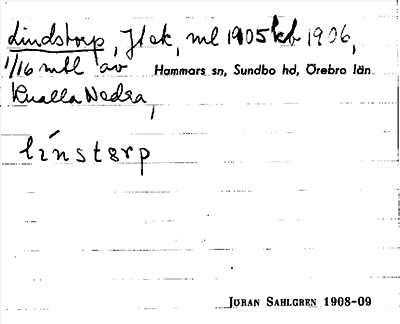 Lindstorp, Jlek, ml 1905 kb 1906,
1/16 mtl av Hammars sn, Sundbo hd, Örebro län
Kvalla Nedra,
línstɛrp
JÖRAN SAHLGREN 1908-09